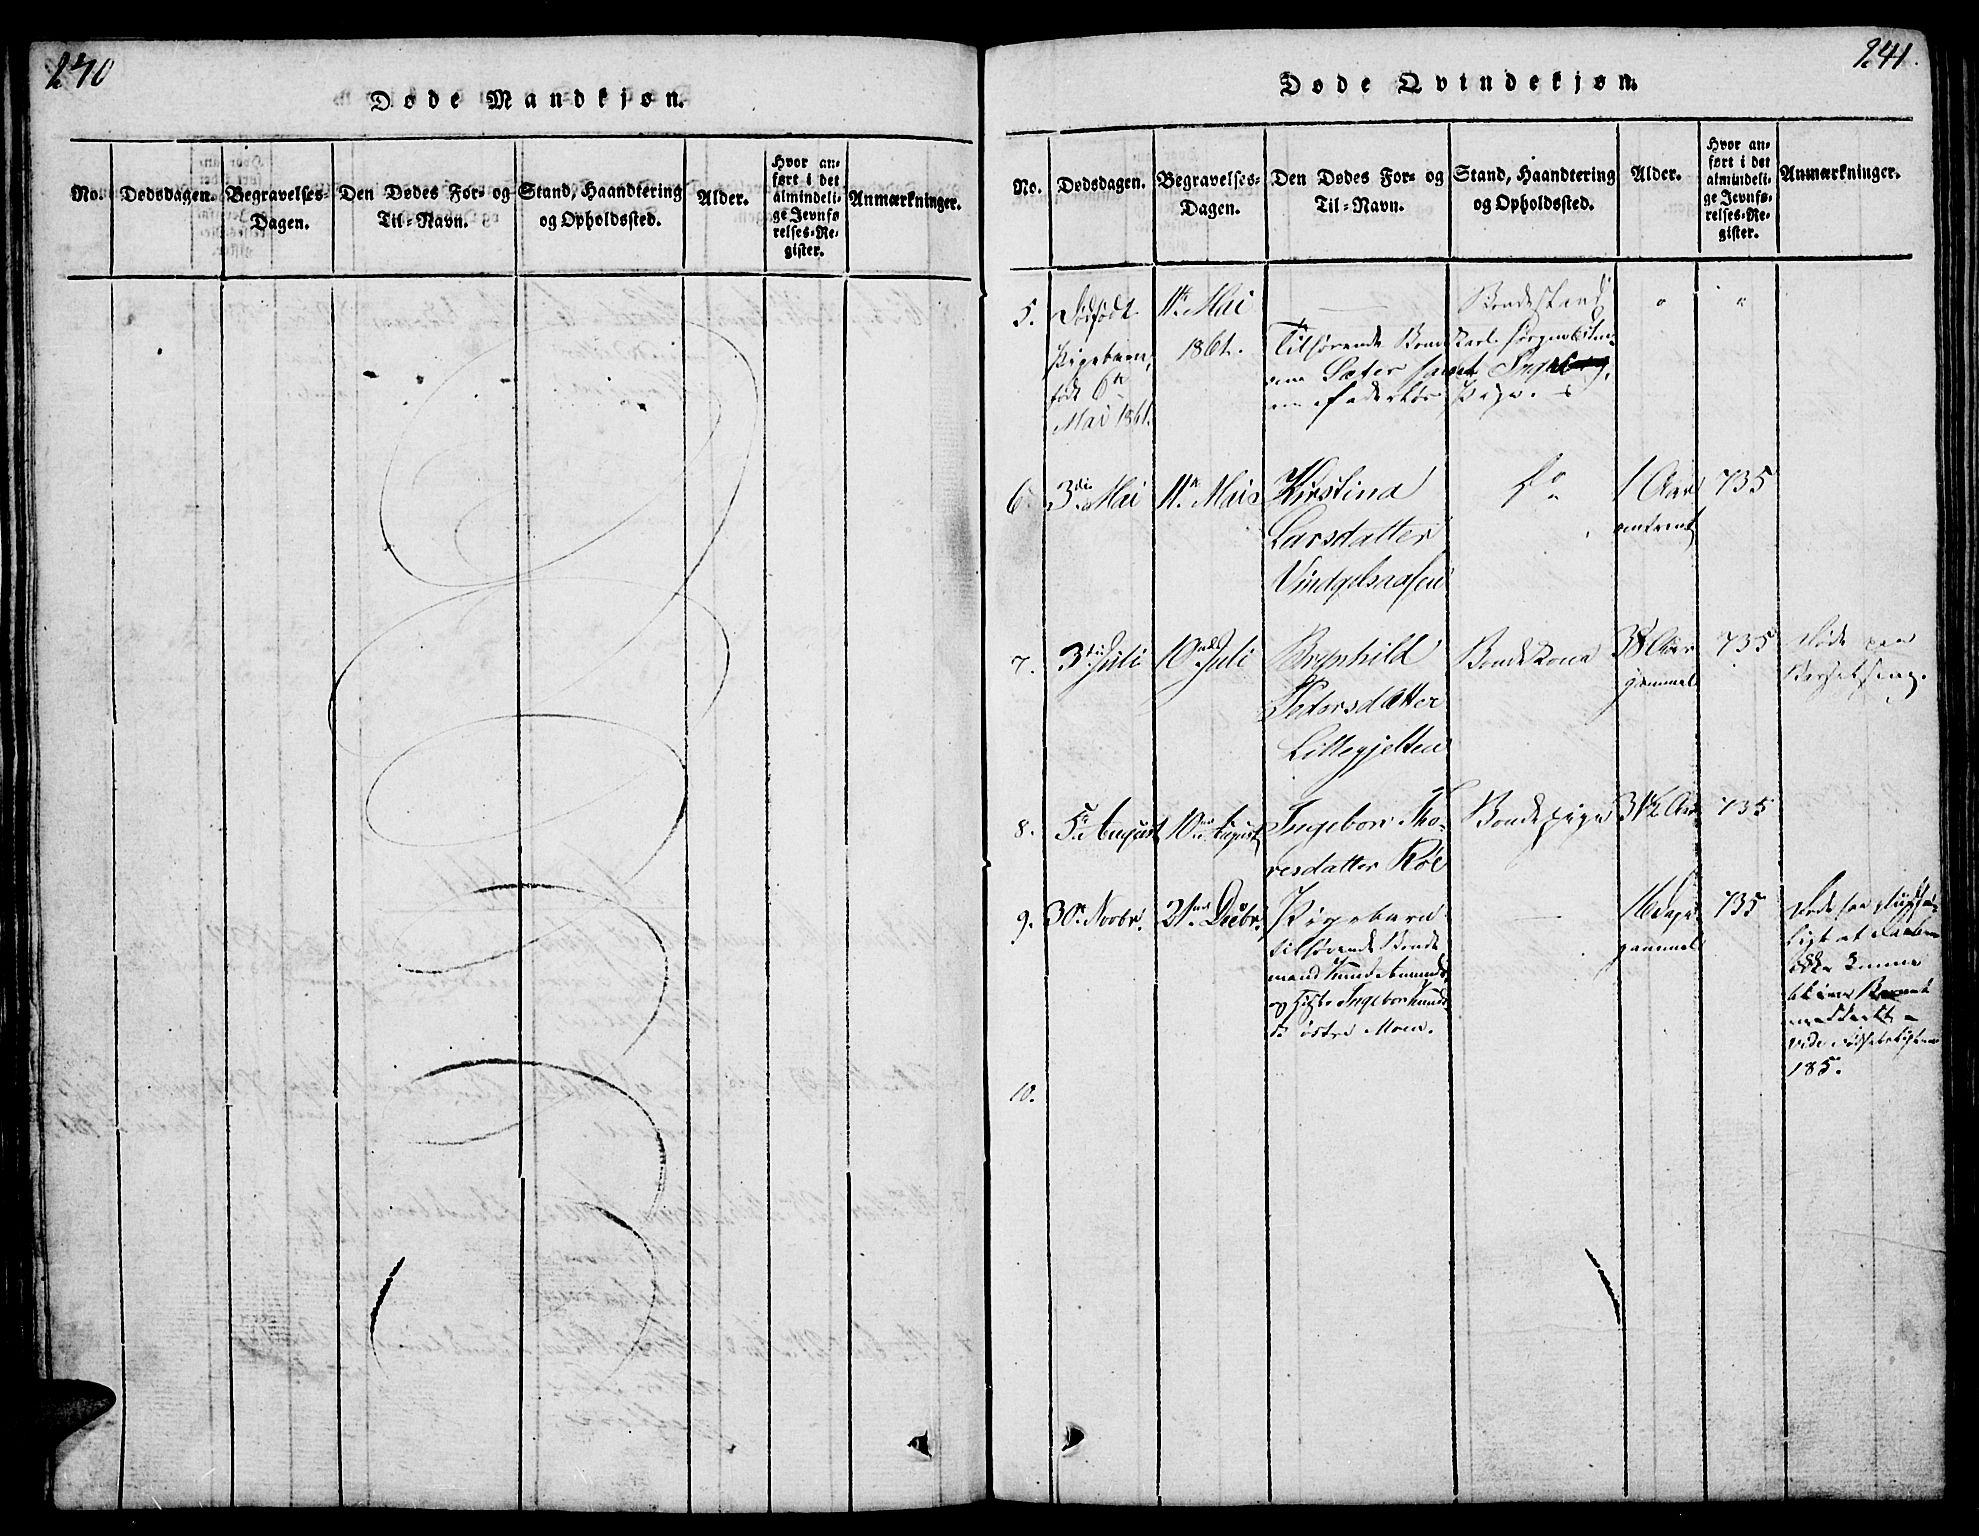 240
Døde Mandkjøn.
No.
Dødsdagen.
Begravelses-
Dagen.
Den Dødes For- og
Til-Navn.
Stand, Haandtering
og Opholdssted.
Alder.
Hvor an-
ført i det
almindeli-
ge Jevnfø-
relses-Re-
gister.
Anmærkninger.
241.
Døde Qvindekjøn.
No.
Dødsdagen.
Begravelses-
Dagen.
Den Dødes For- og
Til-Navn.
Stand, Haandtering
og Opholdssted.
Alder.
Hvor an-
ført i det
almindeli-
ge Jevnfø-
relses-Re-
gister.
Anmærkninger.
5.
Dødfødt
Pigebarn,
født 6te
Mai 1861.
11te Mai
1861.
Bondestand
Tilhørende
Pige.
6.
3die Mai
11te Mai
Kirstina
Larsdatter
do
1 Aar
omtrent
735
7.
3die Juli
10de Juli
Brynhild
Pedersdatter
Lillegjelten
Bondekone
38 Aar
gammel
735
Døde paa
Barselseng.
8.
5te August
10de August
Ingebor Tho-
resdatter Röe
Bondepige
31½ Aar
735
9.
30te Novbr.
21de Decbr.
Pigebarn
tilhørende Bonde
mand
og Hustr. Ingebor
østre Moen.
16 Dage
gammel
735
Døde saa
ligt at Daaben
ikke kunne
meddeelt
vide
185.
10.